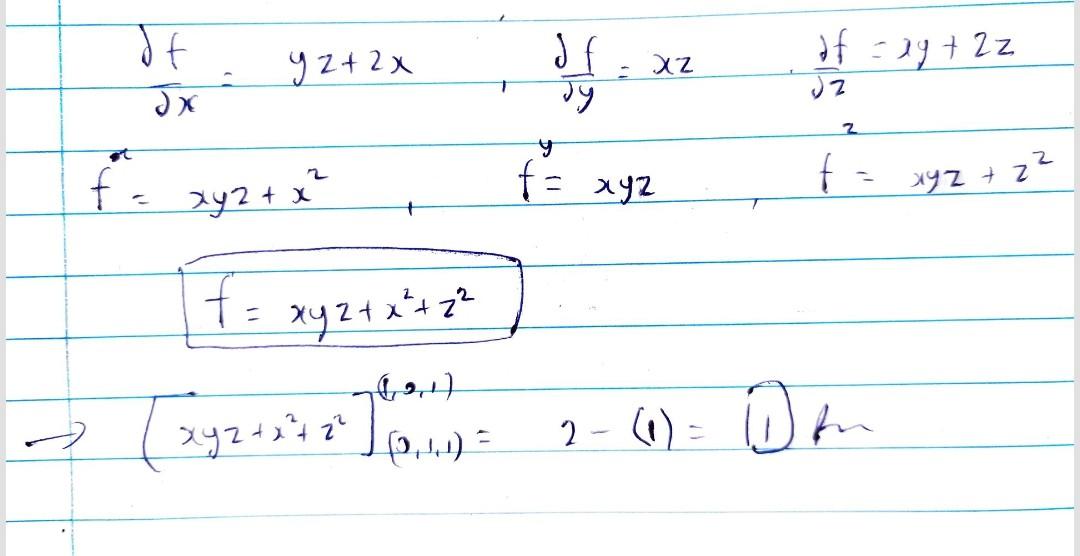 ∂f/∂x = yz+2x , ∂f/∂y = xz , ∂f/∂z = xy + 2z
f^x = xyz + x² , f^y = xyz , f^z = xyz + z²
f = xyz + x² + z²
→ [xyz + x² + z²]^(1,0,1)_(0,1,1) = 2 - (1) = 1